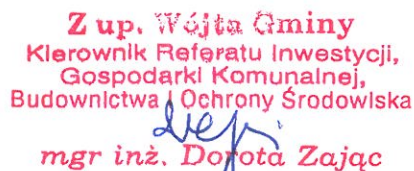 Z up. Wójta Gminy
Kierownik Referatu Inwestycji,
Gospodarki Komunalnej,
Budownictwa i Ochrony Środowiska
mgr inż. Dorota Zając